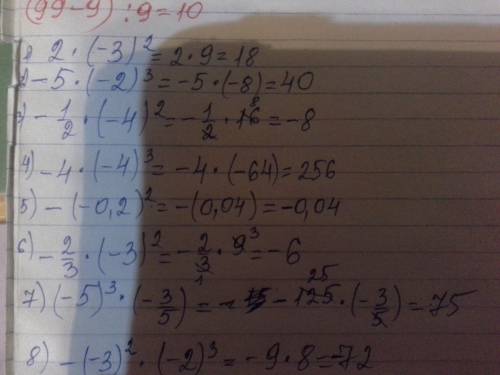 (99-9) : 9 = 10
1) 2 · (-3)² = 2 · 9 = 18
2) -5 · (-2)³ = -5 · (-8) = 40
3) -1/2 · (-4)² = -1/2 · 16 8 = -8
4) -4 · (-4)³ = -4 · (-64) = 256
5) -(-0,2)² = -(0,04) = -0,04
6) -2/3 · (-3)² = -2/3 1 · 9 3 = -6
7) (-5)³ · (-3/5) = -125 25 · (-3/5) = 75
8) -(-3)² · (-2)³ = -9 · 8 = -72